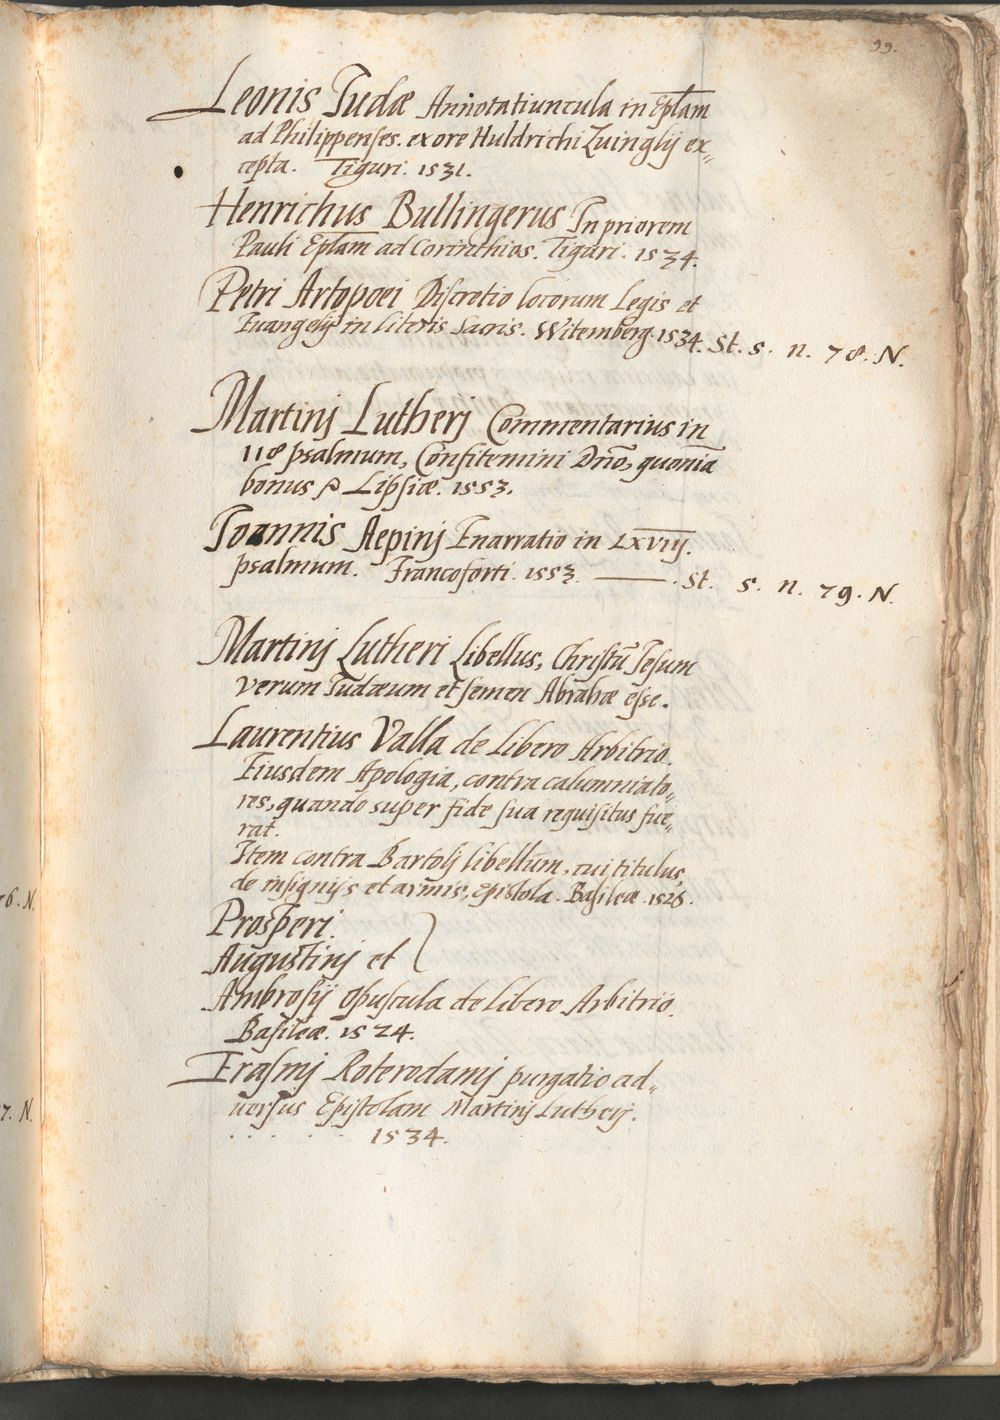 99.
Leonis Iudæ Annotatiuncula in Epl̄am
ad Philippenses. ex ore Huldrichi Zuinglij ex„
cepta. Tiguri. 1531.
Henrichus Bullingerus In priorem
Pauli Epl̄am ad Corinthios. Tiguri. 1534.
Petri Artopoei Discretio locorum Legis et
Euangelij in literis Sacris. Witemberg. 1534. St. s. n. 78. N.
Martinj Lutherj Commentarius in
118 psalmum, Confitemini Dn̄o, quoniā
bonus Lipsiæ. 1553.
Ioannis Aepinj Enarratio in LXVIIJ.
psalmum. Francoforti. 1553. ——. St. s. n. 79. N.
Martinj Lutheri Libellus, Christū Iesum
verum Iudæum et semen Abrahæ esse.
Laurentius Valla de Libero Arbitrio.
Eiusdem Apologia, contra calumniato„
res, quando super fide sua requisitus fue„
rat.
Item contra Bartolj libellum, cui titulus,
de insignijs et armis, epistola. Basileæ. 1526.
Prosperi.
Augustinj et
Ambrosij opuscula de libero Arbitrio.
Basileæ. 1524.
Erasmj Roterodamj purgatio ad„
uersus Epistolam Martinj Lutherj.
. . . . . 1534.
76. N.
7. N.